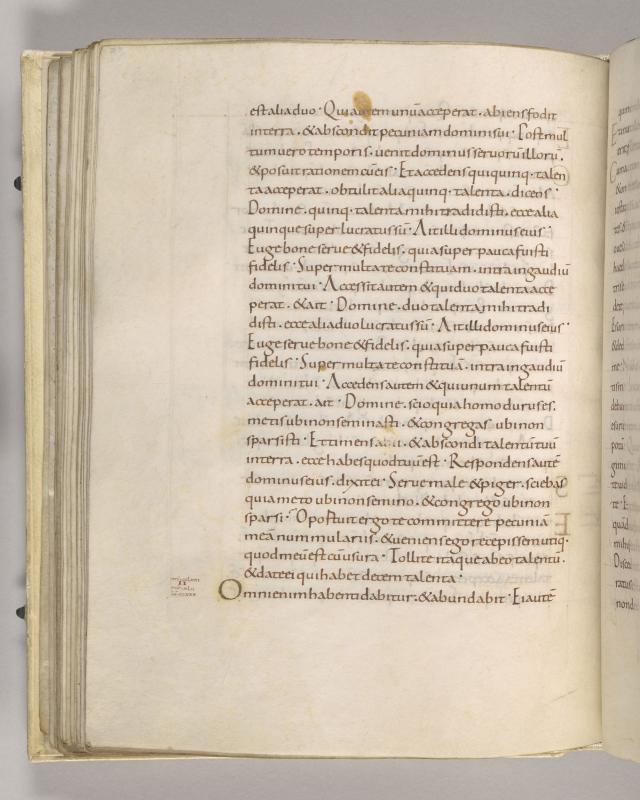 est alia duo · Qui autem unū acceperat · abiens fodit
in terra · & abscondit pecuniam domini sui · Post mul
tum vero temporis · venit dominus servorū illorū ·
& posuit rationem cū eis · Et accedens qui quinq· talen
ta acceperat · obtulit alia quinq· talenta · dicens ·
Domine · quinq· talenta mihi tradidisti · ecce alia
quinque superlucratus sū · Ait illi dominus eius ·
Euge bone serve & fidelis · quia super pauca fuisti
fidelis · Super multa te constituam · intra in gaudiū
domini tui · Accessit autem & qui duo talenta acce
perat · & ait · Domine · duo talenta mihi tradi
disti · ecce alia duo lucratus sū · Ait illi dominus eius ·
Euge serve bone & fidelis · quia super pauca fuisti
fidelis · Super multa te constituā · intra in gaudiū
domini tui · Accedens autem & qui unum talentū
acceperat · ait · Domine · scio quia homo durus es ·
metis ubi non seminasti · & congregas ubi non
sparsisti · Et timens abii · & abscondi talentū tuū
in terra · ecce habes quod tuū est · Respondens autē
dominus eius · dixit ei · Serve male & piger · sciebas
quia meto ubi non semino · & congrego ubi non
sparsi · Oportuit ergo te committere pecuniā
meā nummulariis · & veniens ego recepissem utiq·
quod meū est cū usura · Tollite itaque ab eo talentū ·
& date ei qui habet decem talenta ·
Omni enim habenti dabitur · & abundabit · Ei autē